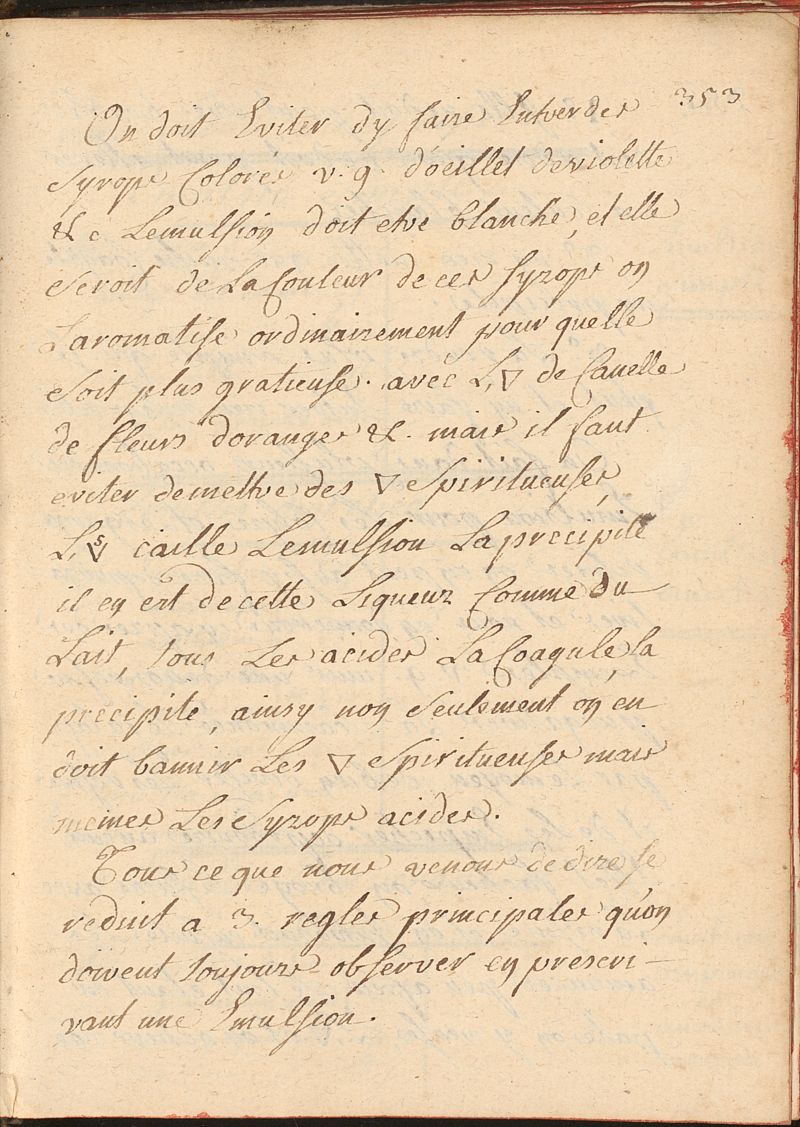 353
On doit Eviter dy faire Entrer des
Syrops Colorés v. g. d'oeillet de violette
&c Lemulsion doit etre blanche, et elle
Seroit de La Couleur de ces Syrops on
Laromatise ordinairement pour quelle
Soit plus gratieuse. avec L'▽ de Canelle
de fleurs doranges &. mais il faut
eviter de mettre des ▽ Spiritueuses,
L' ▽ caille Lemulsion La precipite
il en est de cette Liqueur Comme du
Lait, tous Les acides La Coagule, la
précipite, ainsy non Seulement on en
doit bannir Les ▽ Spiritueuses mais
meines Les Syrops acides.
Tous ce que nous venons de dire se
reduit a 3. regles principales qu'on
doivent toujours observer en prescri-
vant une Emulsion.